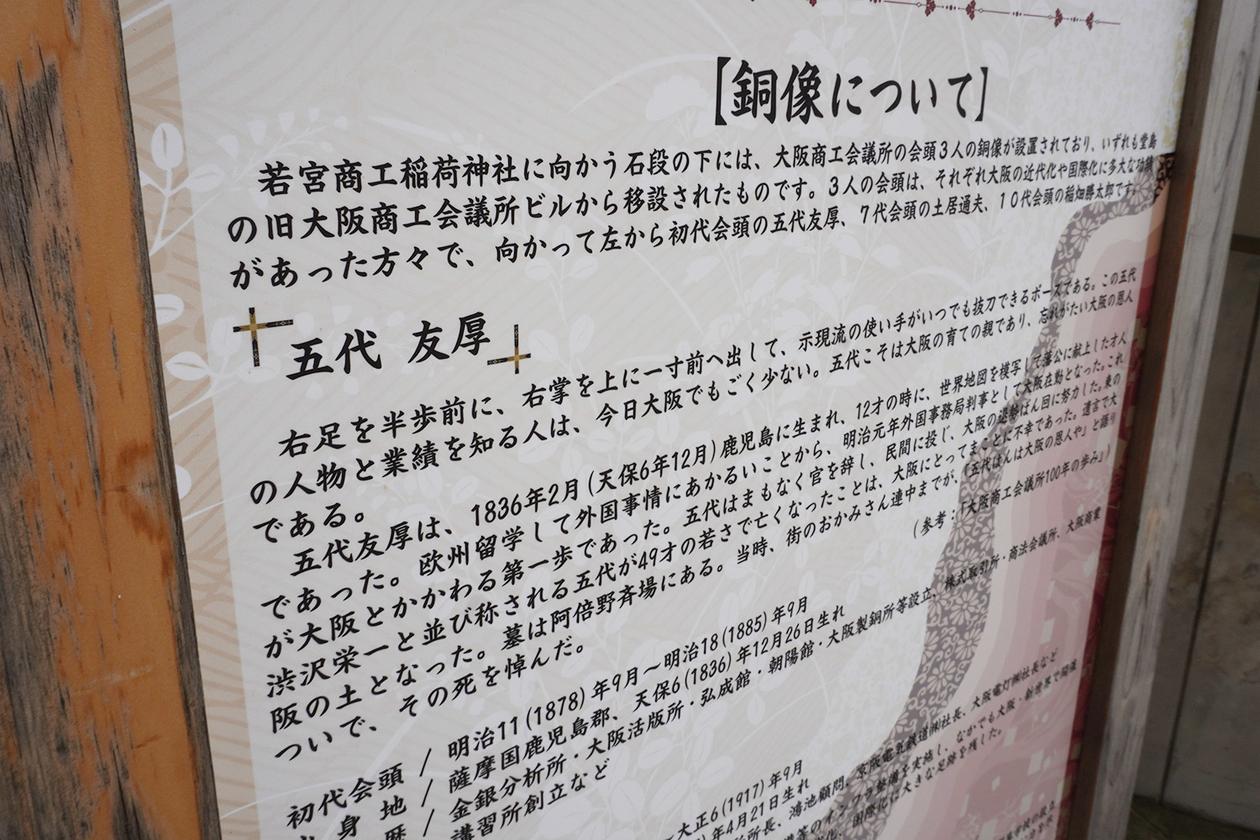 【銅像について】
若宮商工稲荷神社に向かう石段の下には、大阪商工会議所の会頭3人の銅像が設置されており、いずれも堂島
の旧大阪商工会議所ビルから移設されたものです。3人の会頭は、それぞれ大阪の近代化や国際化に多大な功績
があった方々で、向かって左から初代会頭の五代友厚、7代会頭の土居通夫、10代会頭の稲畑勝太郎です。
五代 友厚
右足を半歩前に、右掌を上に一寸前へ出して、示現流の使い手がいつでも抜刀できるポーズである。この五代
の人物と業績を知る人は、今日大阪でもごく少ない。五代こそは大阪の育ての親であり、忘れがたい大阪の恩人
である。
五代友厚は、1836年2月(天保6年12月)鹿児島に生まれ、12才の時に、世界地図を模写して藩公に献上した才人
であった。欧州留学して外国事情にあかるいことから、明治元年外国事務局判事として大阪在勤となった。これ
が大阪とかかわる第一歩であった。五代はまもなく官を辞し、民間に投じ、大阪の退勢ばん回に努力した。東の
渋沢栄一と並び称される五代が49才の若さで亡くなったことは、大阪にとってまことに不幸であった。遺言で大
阪の土となった。墓は阿倍野斉場にある。当時、街のおかみさん連中までが、「五代はんは大阪の恩人や」と語り
ついで、その死を悼んだ。
(参考:「大阪商工会議所100年の歩み」)
初代会頭 / 明治11(1878)年9月~明治18(1885)年9月
身 地 / 薩摩国鹿児島郡、天保6(1836)年12月26日生れ
歴 / 金銀分析所・大阪活版所・弘成館・朝陽館・大阪製銅所等設立、株式取引所・商法会議所、大阪商業
講習所創立など
大正6(1917)年9月
年4月21日生れ
所長、鴻池顧問、京阪電気鉄道㈱社長、大阪電灯㈱社長など
等のインフラ整備を実施し、なかでも大阪・新世界で開催
化、国際化に大きな足跡を残した。